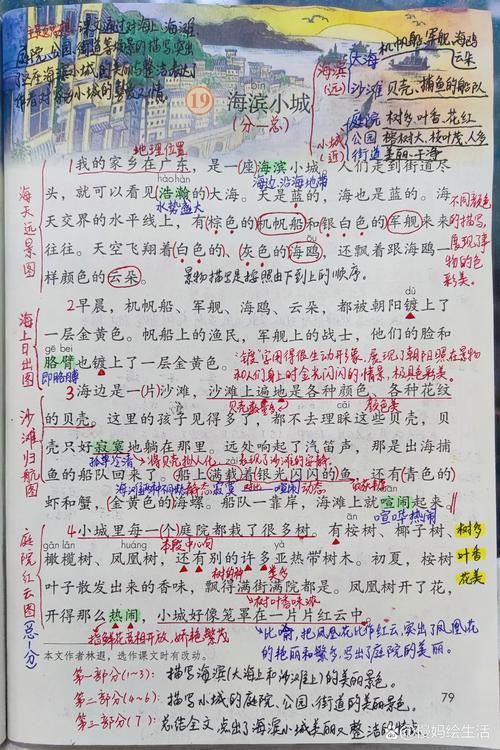 主要内容:课文通过对海上、海滩、
庭院、公园、街道等场景的描写,突出
这座海滨小城的美丽与整洁,表达
作者对家乡小城的赞美之情。
海滨(远)
大海 机帆船、军舰、海鸥、云朵
沙滩 贝壳、捕鱼的船队
小城(近)
庭院 树多、叶香、花红
公园 榕树大、枝叶茂、人多
街道 美丽、干净
19 海滨小城
(分—总)
地理位置
1我的家乡在广东,是一(座)海滨小城。人们走到街道尽
hào hàn
海边、沿海地带
头,就可以看见浩瀚的大海。天是蓝的,海也是蓝的。海
水势盛大
天交界的水平线上,有棕色的机帆船和银白色的军舰来来
ōu
往往。天空飞翔着白色的、灰色的海鸥,还飘着跟海鸥一
样颜色的云朵。
景物描写是按照由下到上的顺序。
不同颜色的描写,展现了事物的色彩美。
海天远景图
2早晨,机帆船、军舰、海鸥、云朵,都被朝阳镀上了
一层金黄色。帆船上的渔民,军舰上的战士,他们的脸和
gē bei
胳臂也镀上了一层金黄色。
即胳膊
“镀”字用得很生动形象,展现了朝阳照在景物和人们身上时金光闪闪的情景,极具色彩美。
海上日出图
3海边是一(片)沙滩,沙滩上遍地是各种颜色、各种花纹
贝壳数量多
颜色美
的贝壳。这里的孩子见得多了,都不去理睬这些贝壳,贝
壳只好寂寞地躺在那里。远处响起了汽笛声,那是出海捕
孤单冷清
鱼的船队回来了。船上满载着银光闪闪的鱼,还有青色的
虾和蟹,金黄色的海螺。船队一靠岸,海滩上就喧闹起来。
喧哗热闹
沙滩归航图
4小城里每一(个)庭院都栽了很多树。有桉树、椰子树、
gǎn lǎn
huáng
本段中心句
橄榄树、凤凰树,还有别的许多亚热带树木。初夏,桉树
树的种类多
叶子散发出来的香味,飘得满街满院都是。凤凰树开了花,
树叶香味浓
开得那么热闹,小城好像笼罩在一片片红云中。
指鲜花竞相开放,娇艳繁茂
比喻,把凤凰花比作红云,突出了凤凰花的艳丽和繁多,写出了庭院的美丽。
树多
叶香
花美
庭院红云图(总—分)
本文作者林遐,选作课文时有改动。
第一部分(1~3):描写海滨(大海上和沙滩上)的美丽景色。
第二部分(4~6):描写小城的庭院、公园、街道的美景。
第三部分(7):总结全文,点出了海滨小城美丽又整洁的特点
79